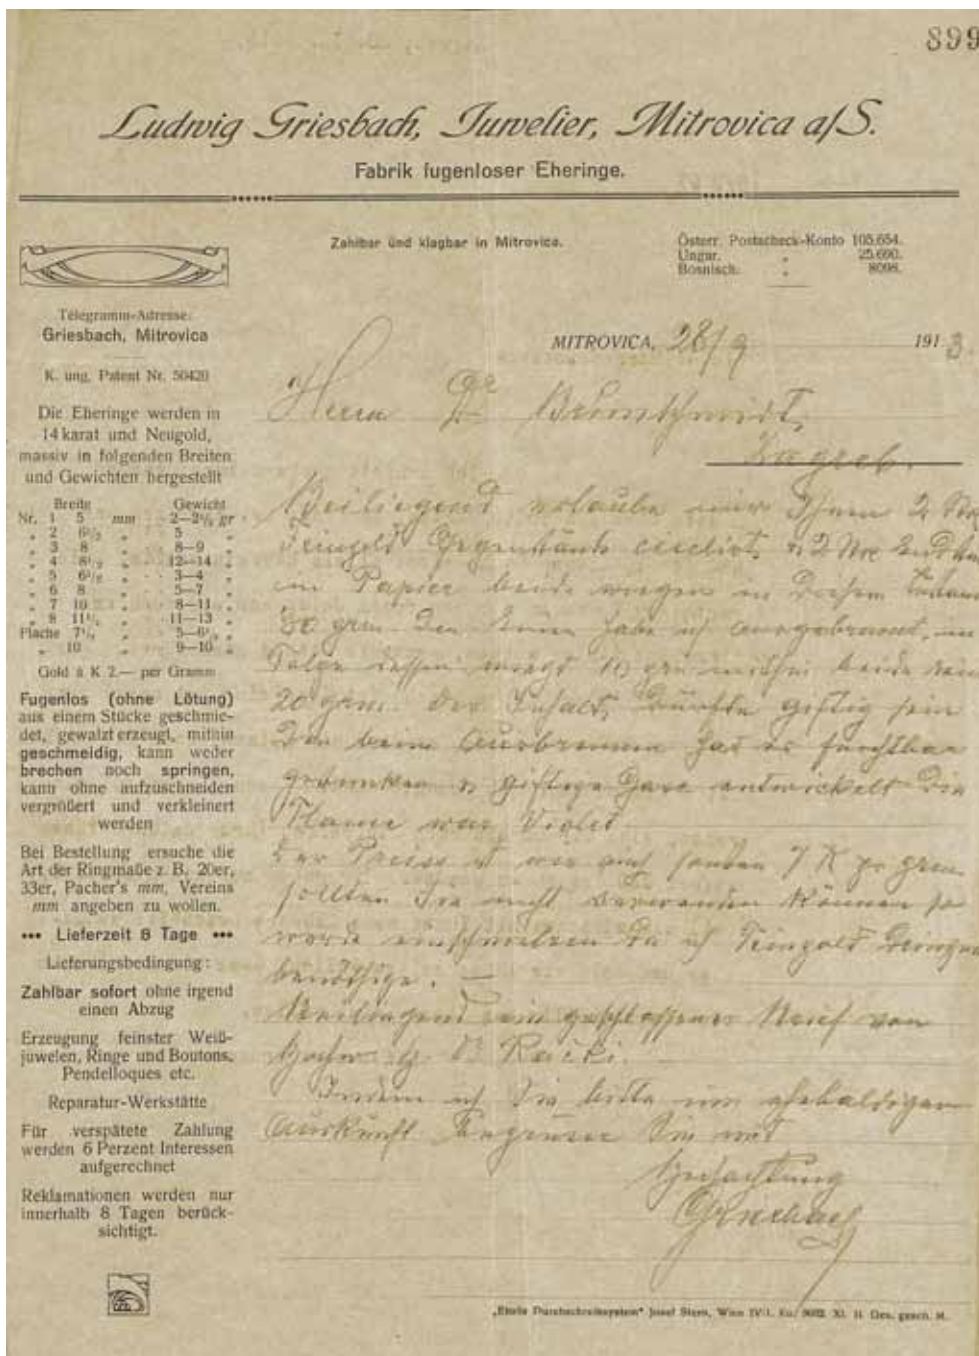 899
Ludwig Griesbach, Juwelier, Mitrovica a/S.
Fabrik fugenloser Eheringe.
Zahlbar und klagbar in Mitrovica.
Österr. Postscheck-Konto 105.654.
Ungar. „ 25.690.
Bosnisch. „ 8098.
Telegramm-Adresse:
Griesbach, Mitrovica
K. ung. Patent Nr. 50420
Die Eheringe werden in
14 karat und Neugold,
massiv in folgenden Breiten
und Gewichten hergestellt
Breite Gewicht
Nr. 1 5 mm 2—2½ gr
„ 2 6½ „ 5 „
„ 3 8 „ 8—9 „
„ 4 8½ „ 12—14 „
„ 5 6½ „ 3—4 „
„ 6 8 „ 5—7 „
„ 7 10 „ 8—11 „
„ 8 11½ „ 11—13 „
Flache 7½ „ 5—6½ „
„ 10 „ 9—10 „
Gold à K 2.— per Gramm
Fugenlos (ohne Lötung)
aus einem Stücke geschmie-
det, gewalzt erzeugt, mithin
geschmeidig, kann weder
brechen noch springen,
kann ohne aufzuschneiden
vergrößert und verkleinert
werden
Bei Bestellung ersuche die
Art der Ringmaße z. B. 20er,
33er, Pacher's mm, Vereins
mm angeben zu wollen.
••• Lieferzeit 8 Tage •••
Lieferungsbedingung:
Zahlbar sofort ohne irgend
einen Abzug
Erzeugung feinster Weiß-
juwelen, Ringe und Boutons,
Pendelloques etc.
Reparatur-Werkstätte
Für verspätete Zahlung
werden 6 Perzent Interessen
aufgerechnet
Reklamationen werden nur
innerhalb 8 Tagen berück-
sichtigt.
MITROVICA, 28/9 1913.
Herrn Dr Brunschmidt,
Zagreb.
Beiliegend erlaube mir Ihnen 2
Feingold Gegenstände
im Papier beide wiegen in diesem
30 grm. Den einen habe ich ausgebrannt, in
Folge dessen wiegt beide
20 grm. Der Inhalt dürfte giftig sein
Den beim Ausbrennen hat es furchtbar
gestunken giftige Gase entwickelt Die
Flamme war Violet
Der Preis ist wie auch sonsten 7 K pr grm.
sollten Sie nicht verwenden können so
werde einschmelzen da ich Feingold dringend
benöthige. —
Beiliegend ein geschlossener Brief von
Dr Rački.
Indem ich Sie bitte um ehebaldigen
Auskunft Sie mit
Hochachtung
Griesbach
„Etoile Durchschreibsystem" Josef Stern, Wien IV/1. Ges. gesch. M.